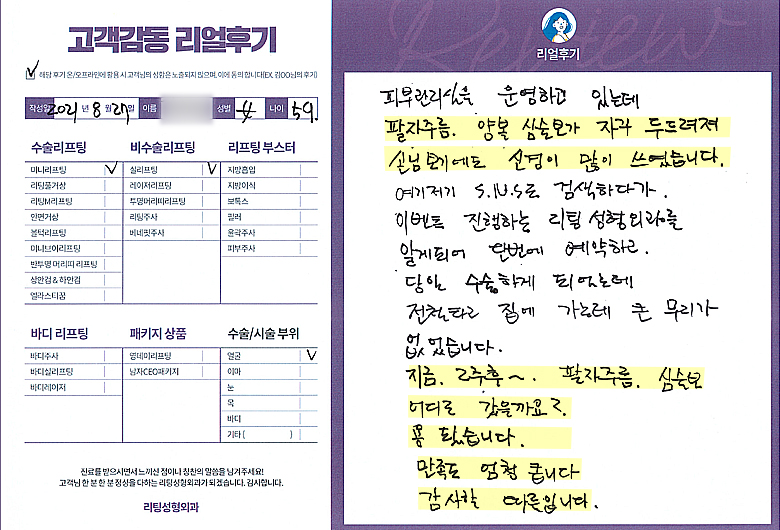 고객감동 리얼후기
✓ 해당 후기 온/오프라인에 활용 시 고객님의 성함은 노출되지 않으며, 이에 동의 합니다(EX. 김OO님의 후기)
작성일 2021 년 8 월 27 일 이름 성별 女 나이 59.
수술리프팅
미니리프팅 ✓
리팅풀거상
리팅M리프팅
안면거상
볼턱리프팅
미니브이리프팅
반투명 머리띠 리프팅
상안검 & 하안검
엘라스티꿈
비수술리프팅
실리프팅 ✓
레이저리프팅
투명머리띠리프팅
리팅주사
베네핏주사
리프팅 부스터
지방흡입
지방이식
보톡스
필러
윤곽주사
피부주사
바디 리프팅
바디주사
바디실리프팅
바디레이저
패키지 상품
영데이리프팅
남자CEO패키지
수술/시술 부위
얼굴 ✓
이마
눈
목
바디
기타 ( )
진료를 받으시면서 느끼신 점이나 칭찬의 말씀을 남겨주세요!
고객님 한 분 한 분 정성을 다하는 리팅성형외과가 되겠습니다. 감사합니다.
리팅성형외과
Review
리얼후기
피부관리실을 운영하고 있는데
팔자주름. 양볼 심술보가 자꾸 두드려져
손님 보기에도 신경이 많이 쓰였습니다.
여기저기 S.N.S로 검색하다가.
이벤트 진행하는 리팅성형외과를
알게되어 단번에 예약하고.
당일 수술하게 되었는데
전철타고 집에 가는데 큰 무리가
없었습니다.
지금. 2주후~. 팔자주름. 심술보
어디로 갔을까요?.
뿅 됐습니다.
만족도 엄청 큽니다
감사할 따름입니다.